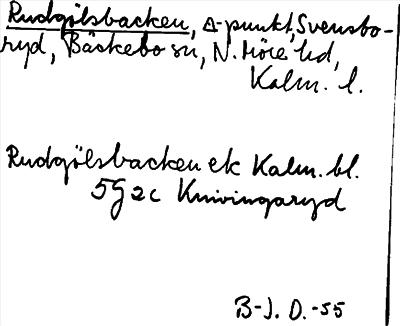 Rudgölsbacken, Δ-punkt, Svensbo-
ryd, Bäckebo sn, N. Möre hd,
Kalm. l.
Rudgölsbacken ek Kalm. bl.
5G 2c Knivingaryd
B-J. O. -55